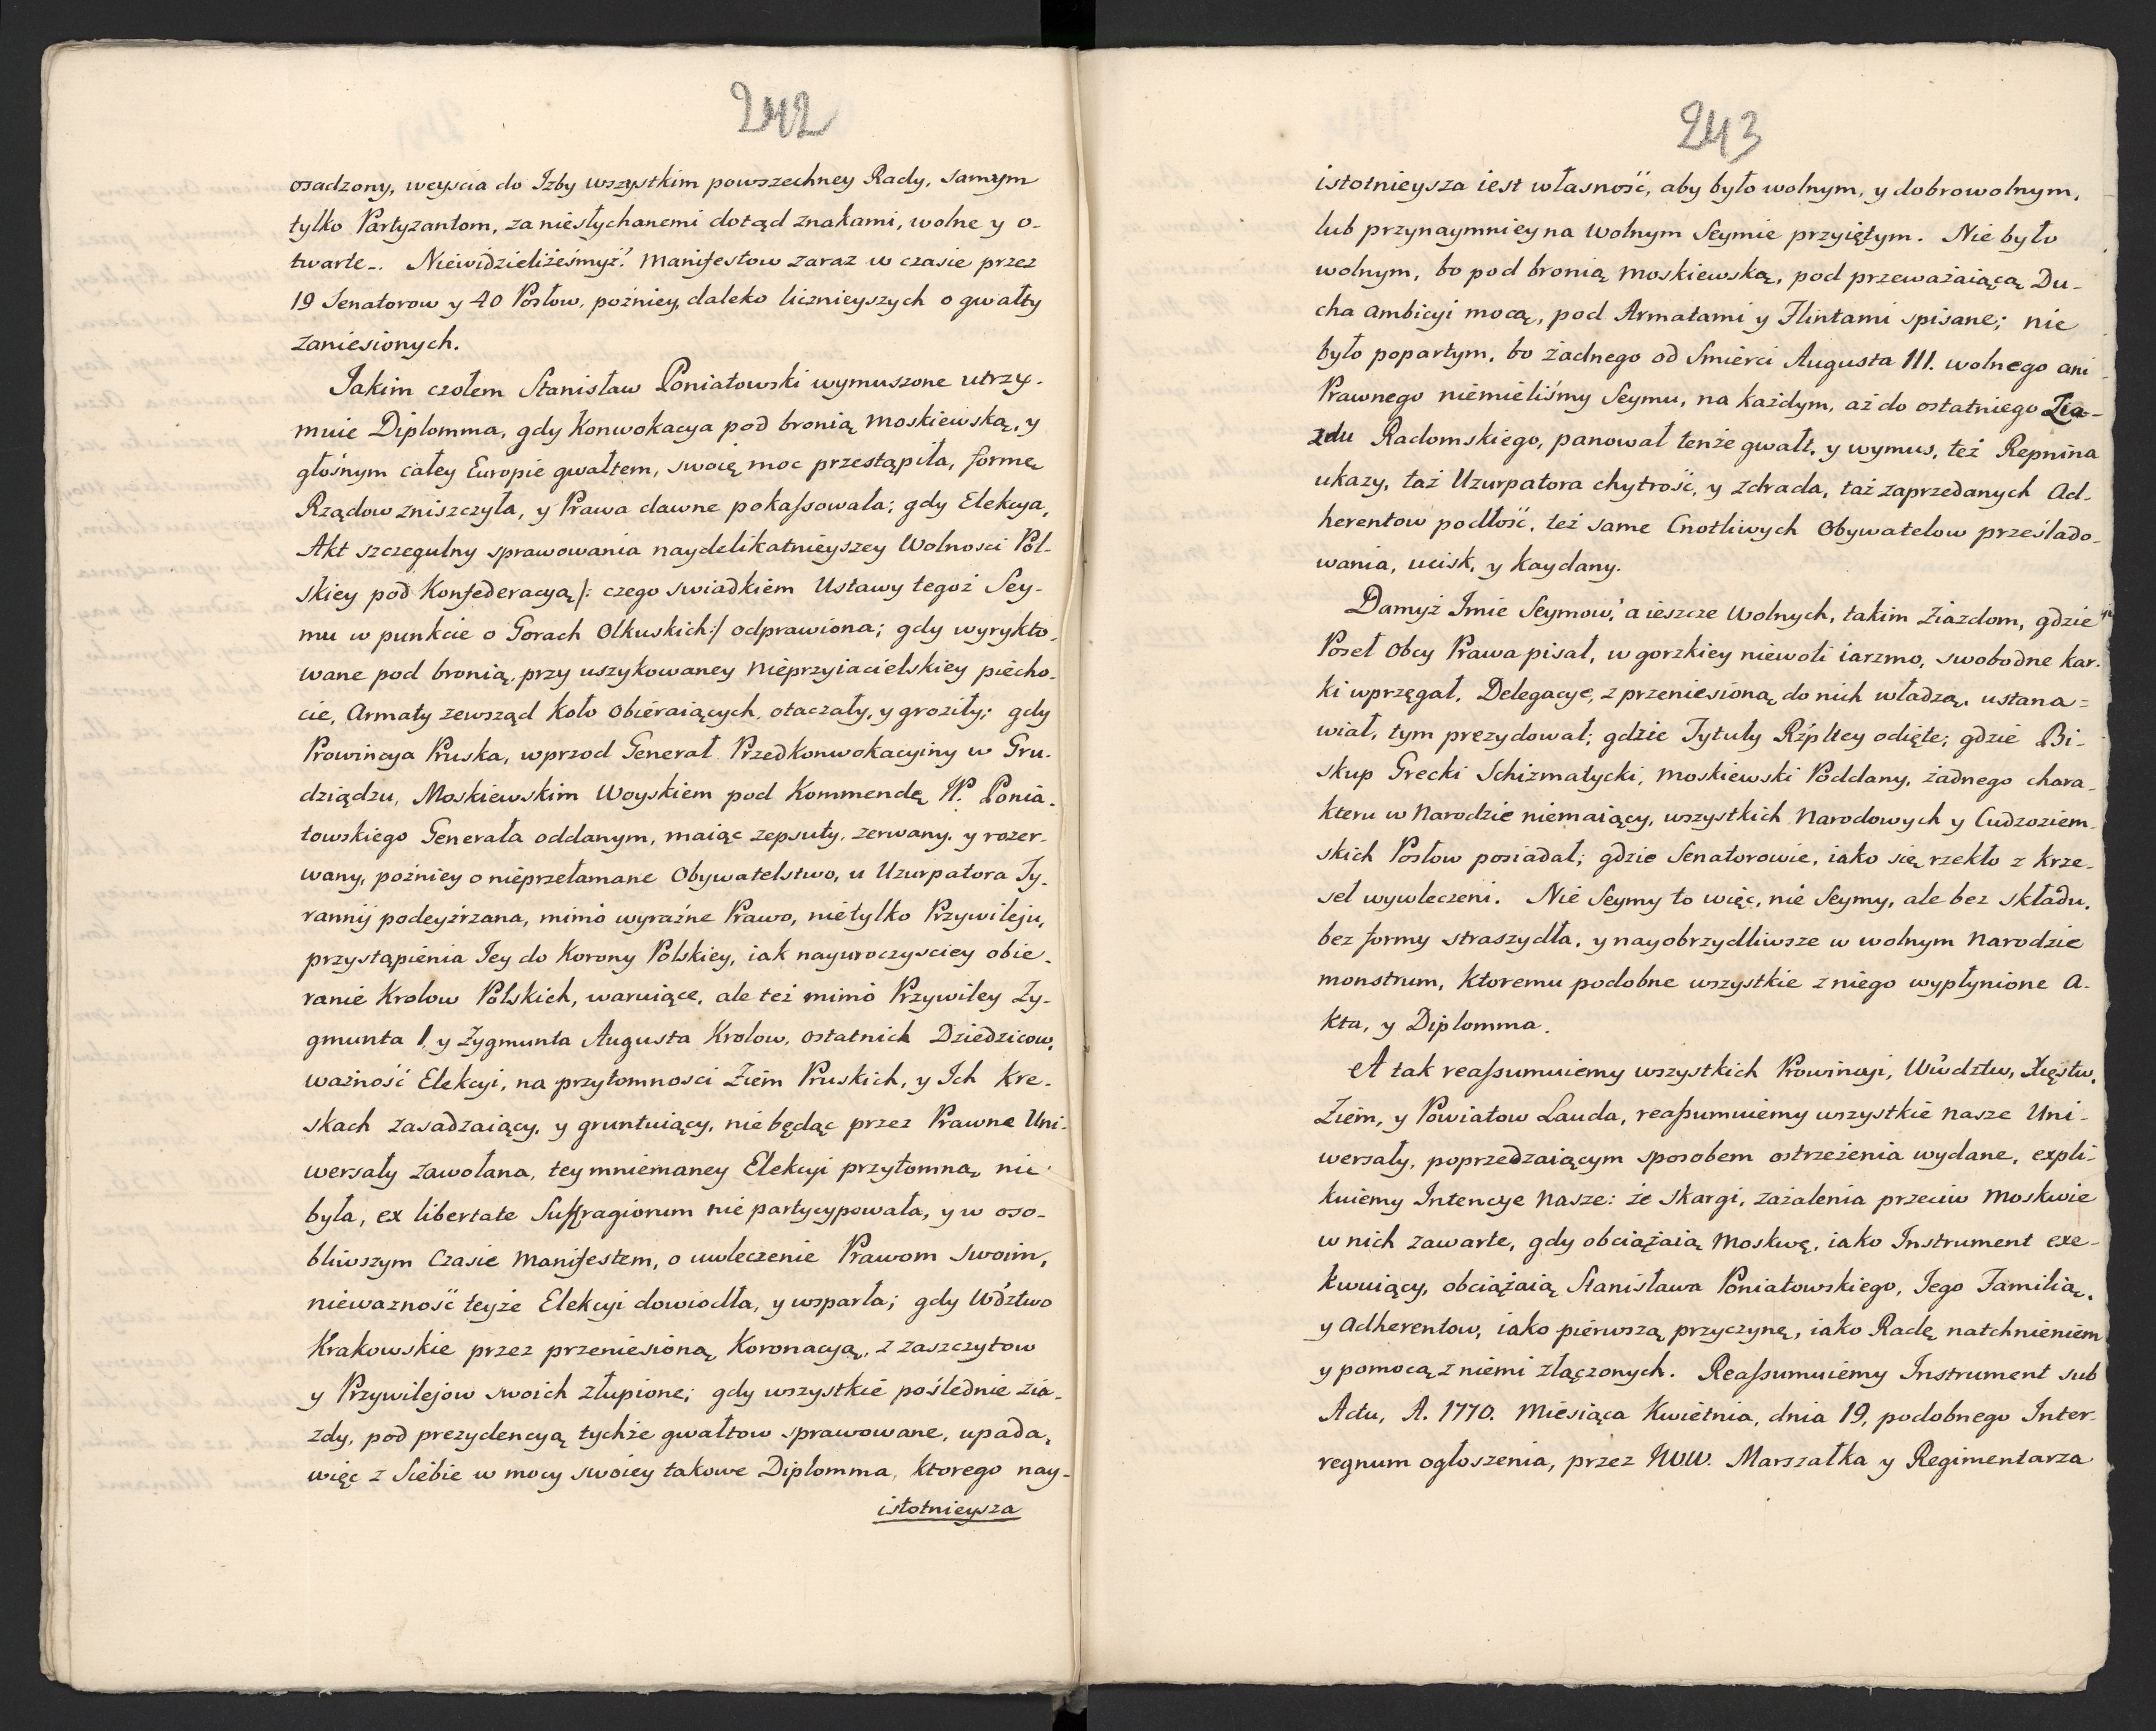 242
osadzony, weyscia do Izby wszystkim powszechney Rady, samym
tylko Partyzantom, za niesłychanemi dotąd znakami, wolne y o-
twarte. Niewidzieliżesmyż? Manifestow zaraz w czasie przez
19 Senatorow y 40 Posłow, poźniey, daleko licznieyszych o gwałty
zaniesionych.
Jakim czołem Stanisław Poniatowski wymuszone utrzy-
muie Diplomma, gdy Konwokacya pod bronią Moskiewską, y
głośnym całey Europie gwałtem, swoię moc przestąpiła, formę
Rządow zniszczyła, y Prawa dawne pokassowała; gdy Elekcya,
Akt szczegulny sprawowania naydelikatnieyszey Wolnosci Pol-
skiey pod Konfederacyą /: czego swiadkiem Ustawy tegoż Sey-
mu w punkcie o Gorach Olkuskich :/ odprawiona; gdy wyrykto-
wane pod bronią, przy uszykowaney nieprzyiacielskiey piecho-
cie, Armaty zewsząd koło obieraiących, otaczały, y groziły; gdy
Prowincya Pruska, wprzod Generał Przedkonwokacyiny w Gru-
dziądzu, Moskiewskim Woyskiem pod Kommendę JP. Ponia-
towskiego Generała oddanym, maiąc zepsuty, zerwany, y rozer-
wany, poźniey o nieprzełamane Obywatelstwo, u Uzurpatora Ty-
rannij podeyźrzana, mimo wyraźne Prawo, nietylko Przywileju,
przystąpienia Jey do Korony Polskiey, iak nayuroczysciey obie-
ranie Krolow Polskich, waruiące, ale też mimo Przywiley Zy-
gmunta I. y Zygmunta Augusta Krolow, ostatnich Dziedzicow,
ważność Elekcyi, na przytomnosci Ziem Pruskich, y Ich Kre-
skach zasadzaiący, y gruntuiący, nie będąc przez Prawne Uni-
wersały zawołana, tey mniemaney Elekcyi przytomną nie
była, ex libertate Suffragiorum nie partycypowała, y w oso-
bliwszym Czasie Manifestem, o uwleczenie Prawom swoim,
nieważność teyże Elekcyi dowiodła, y wsparła; gdy Wdztwo
Krakowskie przez przeniesioną Koronacyą, z zaszczytow
y Przywilejow swoich złupione; gdy wszystkie poślednie zia-
zdy, pod prezydencyą tychże gwałtow sprawowane, upada,
więc z Siebie w mocy swoiey takowe Diplomma, ktorego nay-
istotnieysza
243
istotnieysza iest własność, aby było wolnym, y dobrowolnym,
lub przynaymniey na wolnym Seymie przyiętym. Nie było
wolnym, bo pod bronią Moskiewską, pod przeważaiącą Du-
cha ambicyi mocą, pod Armatami y Flintami spisane; nie
było popartym, bo żadnego od Smierci Augusta III. wolnego ani
Prawnego niemieliśmy Seymu, na każdym, aż do ostatniego Zia-
zdu Radomskiego, panował tenże gwałt, y wymus, też Repnina
ukazy, taż Uzurpatora chytrość, y zdrada, taż zaprzedanych Ad-
herentow podłość, też same Cnotliwych Obywatelow prześlado-
wania, ucisk, y kaydany.
Damyż Imie Seymow, a ieszcze wolnych, takim Ziazdom, gdzie
Poseł obcy Prawa pisał, w gorzkiey niewoli iarzmo, swobodne kar-
ki wprzęgał, Delegacye, z przeniesioną do nich władzą, ustana-
wiał, tym prezydował; gdzie Tytuły Rzpltey odięte; gdzie Bi-
skup Grecki Schizmatycki, Moskiewski Poddany, żadnego chara-
kteru w Narodzie niemaiący, wszystkich Narodowych y Cudzoziem-
skich Posłow posiadał; gdzie Senatorowie, iako się rzekło z krze-
seł wywleczeni. Nie Seymy to więc, nie Seymy, ale bez składu,
bez formy straszydła, y nayobrzydliwsze w wolnym Narodzie
monstrum, ktoremu podobne wszystkie z niego wypłynione A-
kta, y Diplomma.
A tak reassumuiemy wszystkich Prowincyi, Wwdztw, Xięstw,
Ziem, y Powiatow Lauda, reassumuiemy wszystkie nasze Uni-
wersały, poprzedzaiącym sposobem ostrzeżenia wydane, expli-
kuiemy Intencye nasze: że skargi, zażalenia przeciw Moskwie
w nich zawarte, gdy obciążaią Moskwę, iako Instrument exe-
kwuiący, obciążaią Stanisława Poniatowskiego, Jego Familią,
y adherentow, iako pierwszą przyczynę, iako Radę natchnieniem
y pomocą z niemi złączonych. Reassumuiemy Instrument sub
Actu, A. 1770. Miesiąca Kwietnia, dnia 19, podobnego Inter-
regnum ogłoszenia, przez WW. Marszałka y Regimentarza